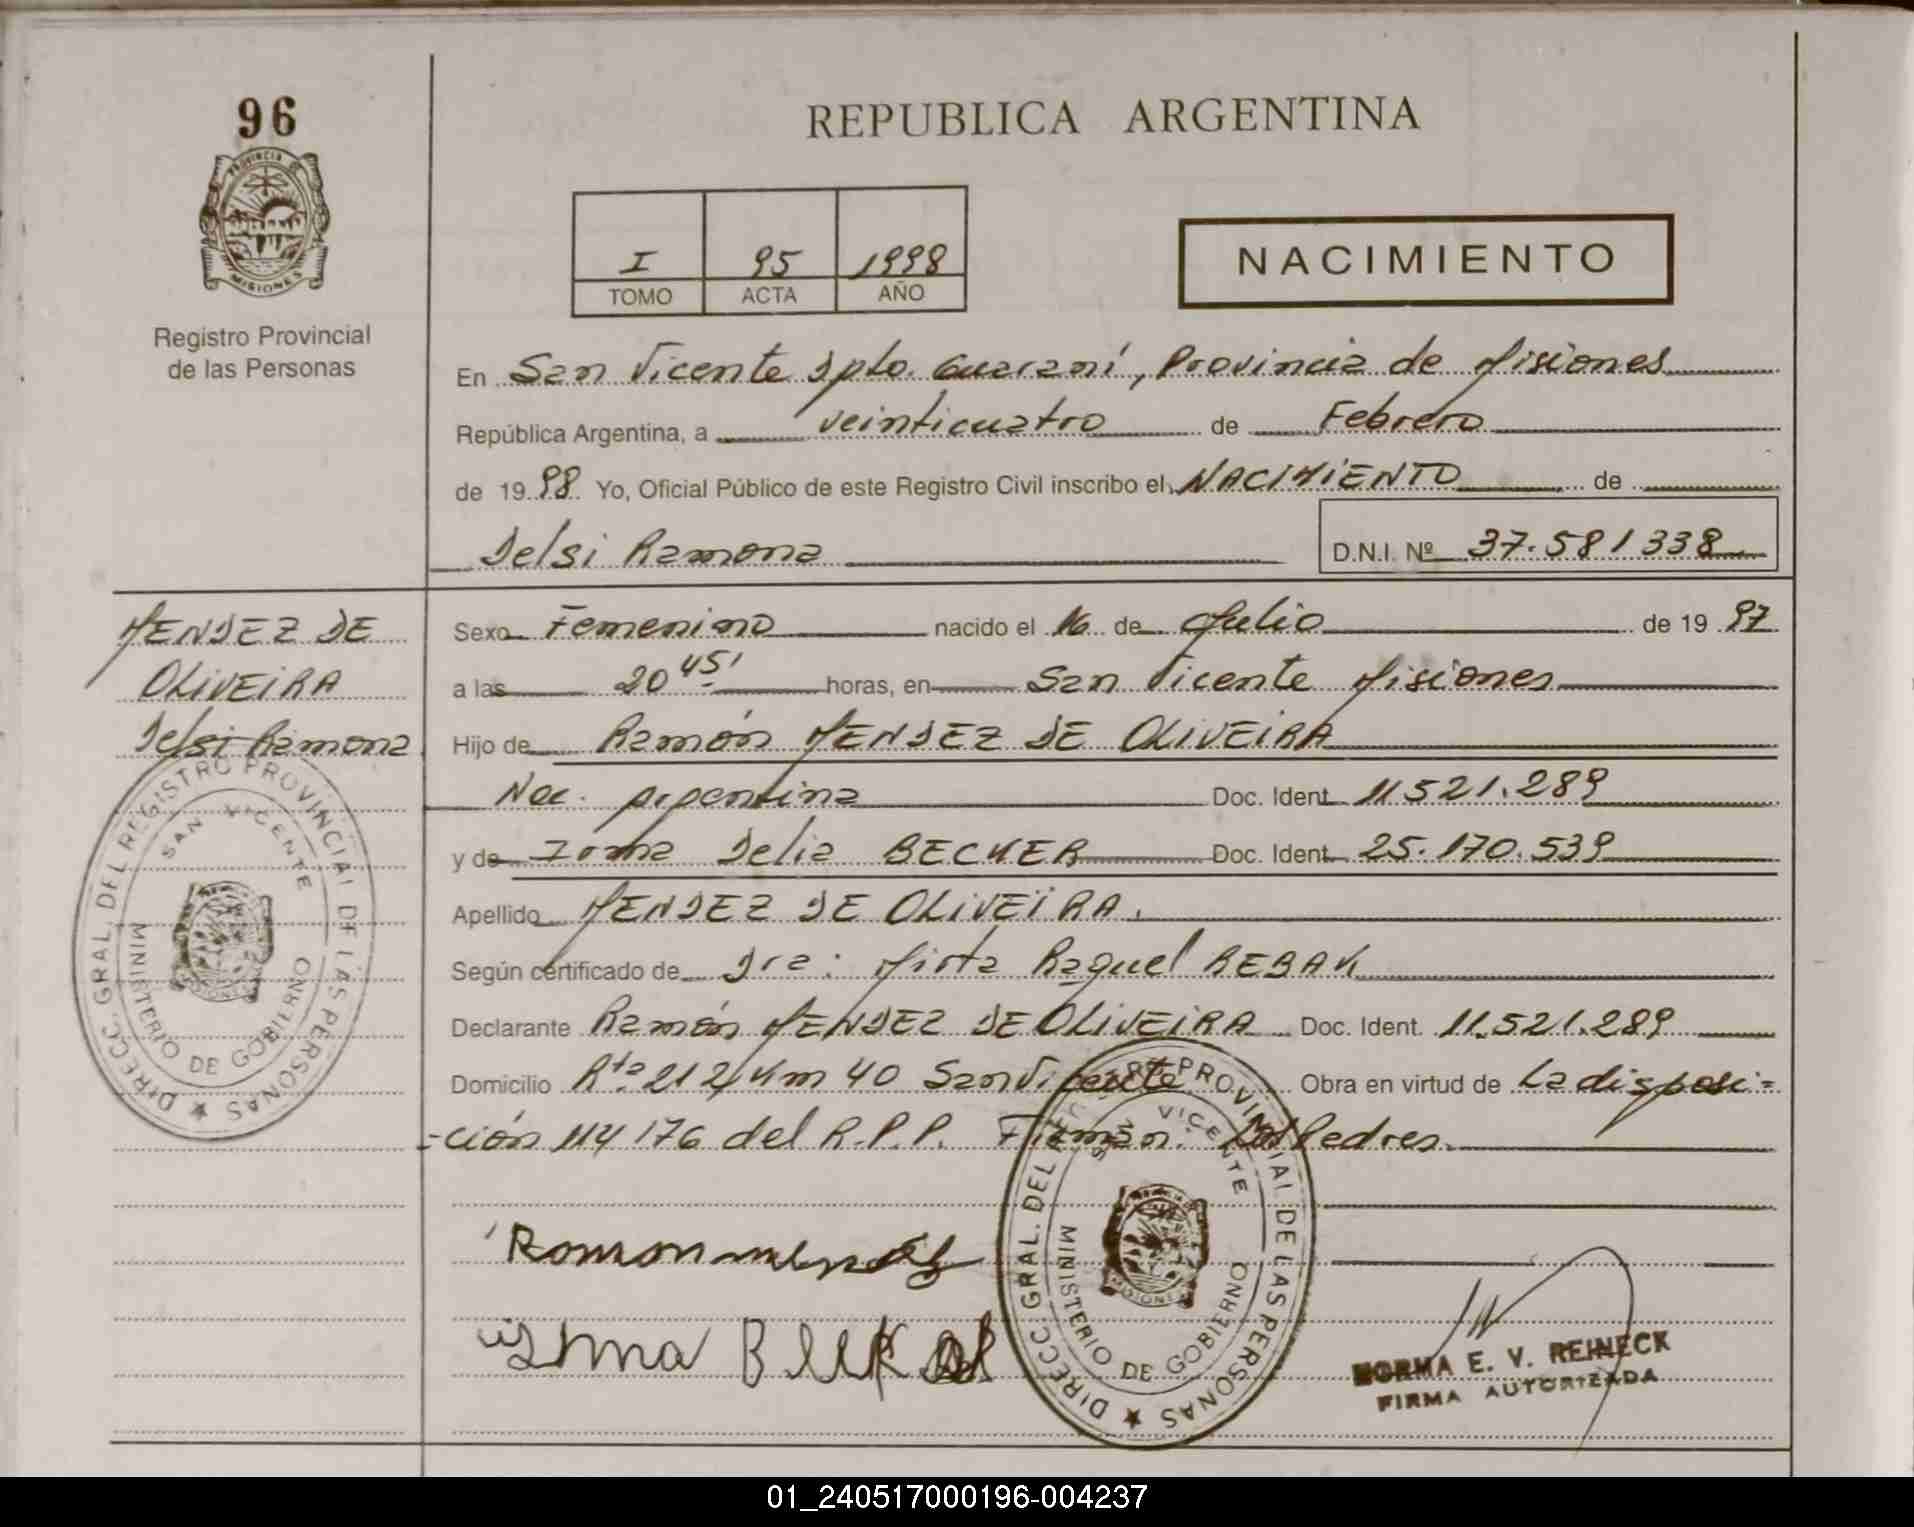 96
PROVINCIA DE
MISIONES
Registro Provincial
de las Personas
REPUBLICA ARGENTINA
I 95 1998
TOMO ACTA AÑO
NACIMIENTO
En San Vicente Dpto. Guaraní, Provincia de Misiones
República Argentina, a veinticuatro de Febrero
de 1998 Yo, Oficial Público de este Registro Civil inscribo el NACIMIENTO de
Delsi Ramona D.N.I. Nº 37.581338
MENDEZ DE
OLIVEIRA
Delsi Ramona
Sexo Femenino nacido el 16 de Julio de 1997
a las 20 45' horas, en San Vicente Misiones
Hijo de Ramón MENDEZ DE OLIVEIRA
Nac. Argentina Doc. Ident. 11521.289
y de Irma Delia BECKER Doc. Ident. 25.170.539
Apellido MENDEZ DE OLIVEIRA.
Según certificado de Dra: Mirta Raquel REBAK
Declarante Ramón MENDEZ DE OLIVEIRA Doc. Ident. 11.521.289
Domicilio Rta 212 Km 40 San Vicente Obra en virtud de La disposi=
=ción 114/176 del R.P.P. Firman: Los Padres.
DIRECC. GRAL. DEL REGISTRO PROVINCIAL DE LAS PERSONAS
SAN VICENTE
MINISTERIO DE GOBIERNO
DIRECC. GRAL. DEL REG PROVINCIAL DE LAS PERSONAS
SAN VICENTE
MISIONES
MINISTERIO DE GOBIERNO
Romon mendez
Irma
NORMA E. V. REINECK
FIRMA AUTORIZADA
01_240517000196-004237